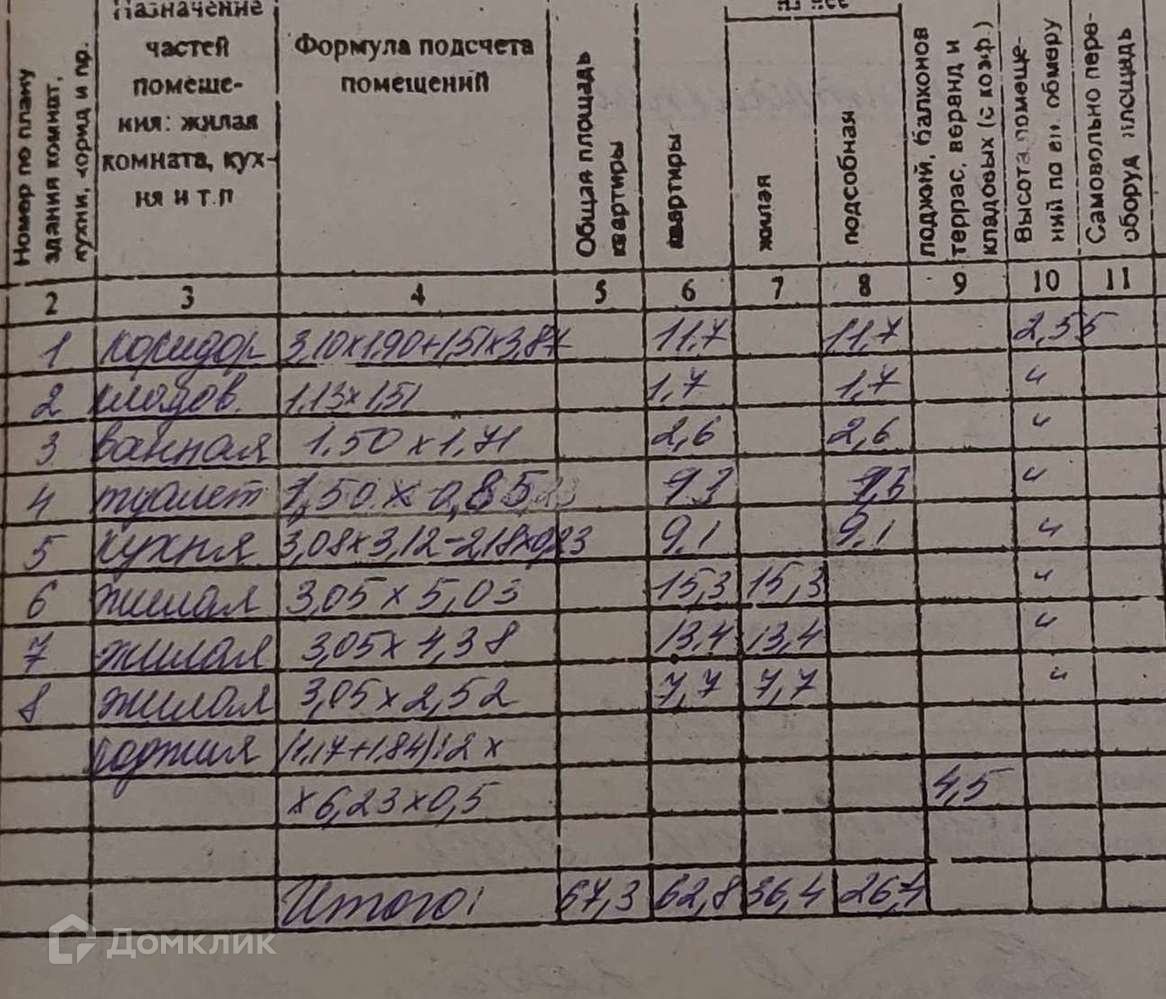 Назначение частей помеще- кия: жилая комната, кух- ня и т.п
Номер по плану здания комнат, кухни, корид и пр.
Формула подсчета помещений
Общая площадь квартиры
из нее
квартиры
жилая
подсобная
лоджий, балконов террас, веранд и кладовых (с коэф.)
Высота помеще- ний по вн. обмеру
Самовольно пере- оборуд площадь
2 3 4 5 6 7 8 9 10 11
1 коридор 3,10х1,90+1,51х3,84 11,7 11,7 2,55
2 кладов. 1,13х1,51 1,7 1,7 "
3 ванная 1,50 х 1,71 2,6 2,6 "
4 туалет 1,50 х 0,85 1,3 "
5 кухня 3,08х3,12-2,18х0,23 9,1 9,1 "
6 жилая 3,05 х 5,03 15,3 15,3 "
7 жилая 3,05х 4,38 13,4 13,4 "
8 жилая 3,05х2,52 7,7 7,7 "
лоджия (1,17+1,84):2 х
х 6,23х0,5 4,5
Итого: 67,3 62,8 36,4 26,4
Домклик